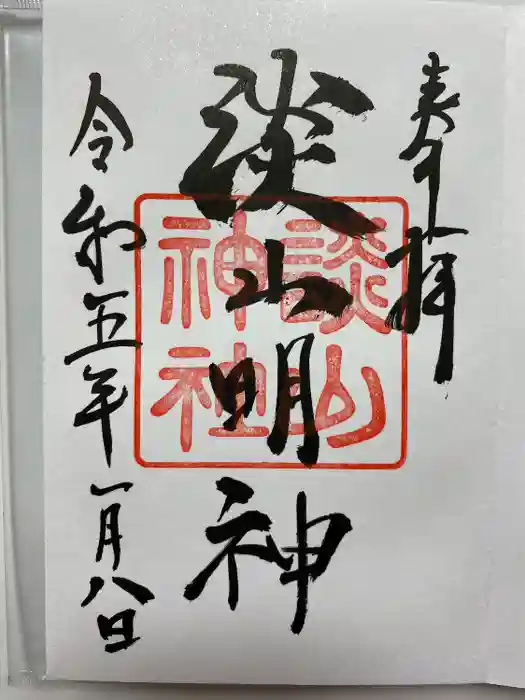 奉拝
談山明神
談山
神社
令和五年一月八日